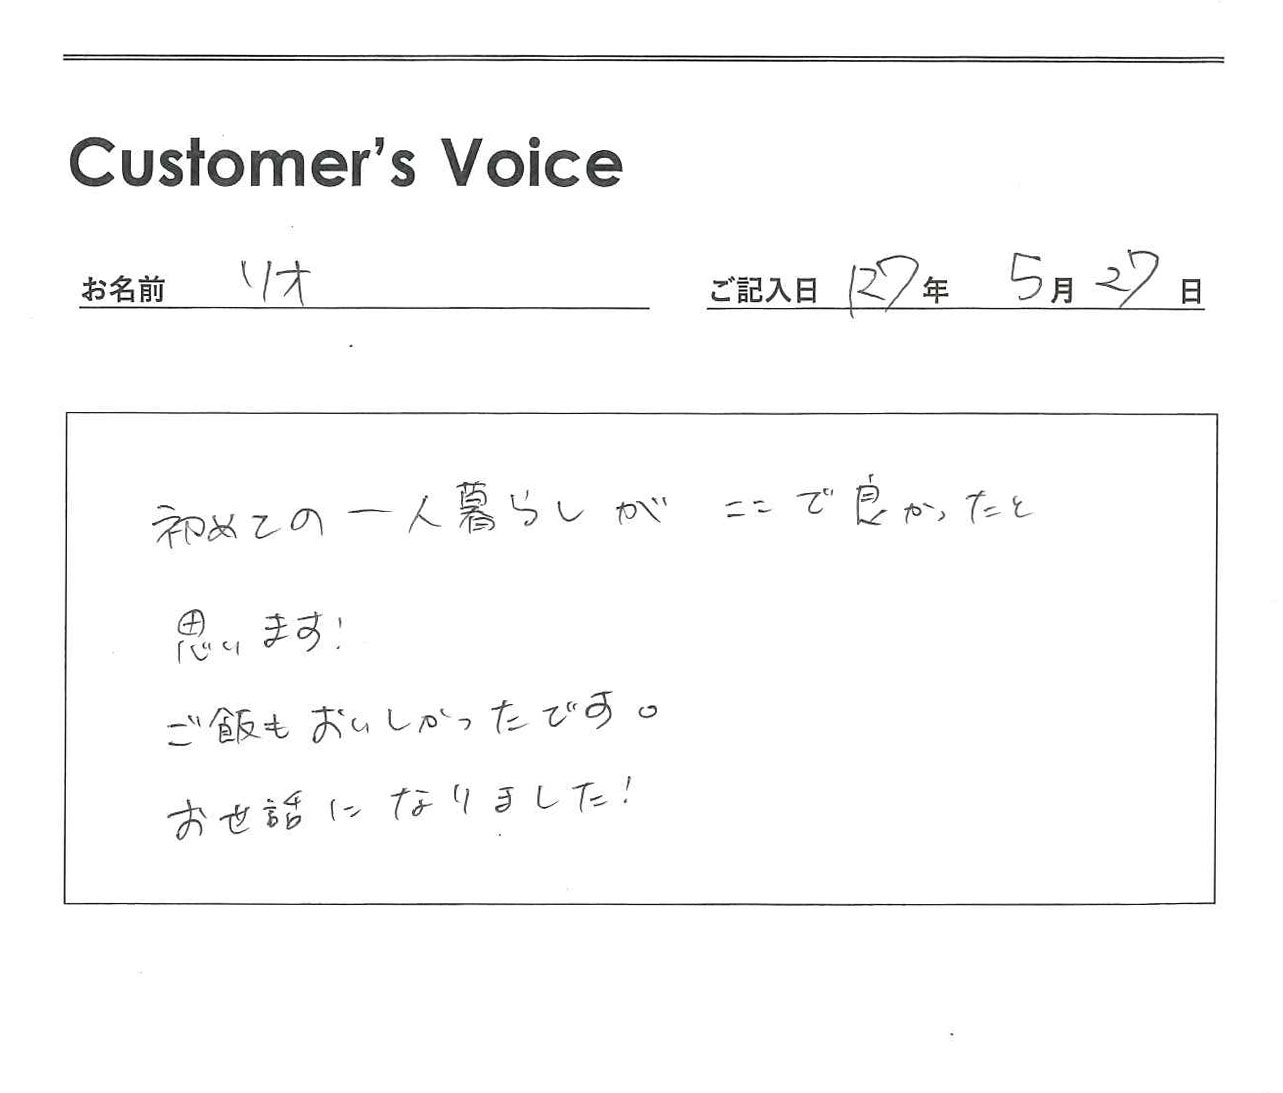 Customer's Voice
お名前 リオ
ご記入日 127年 5月 27日
初めての一人暮らしが ここで良かったと
思います!
ご飯もおいしかったです。
お世話になりました!